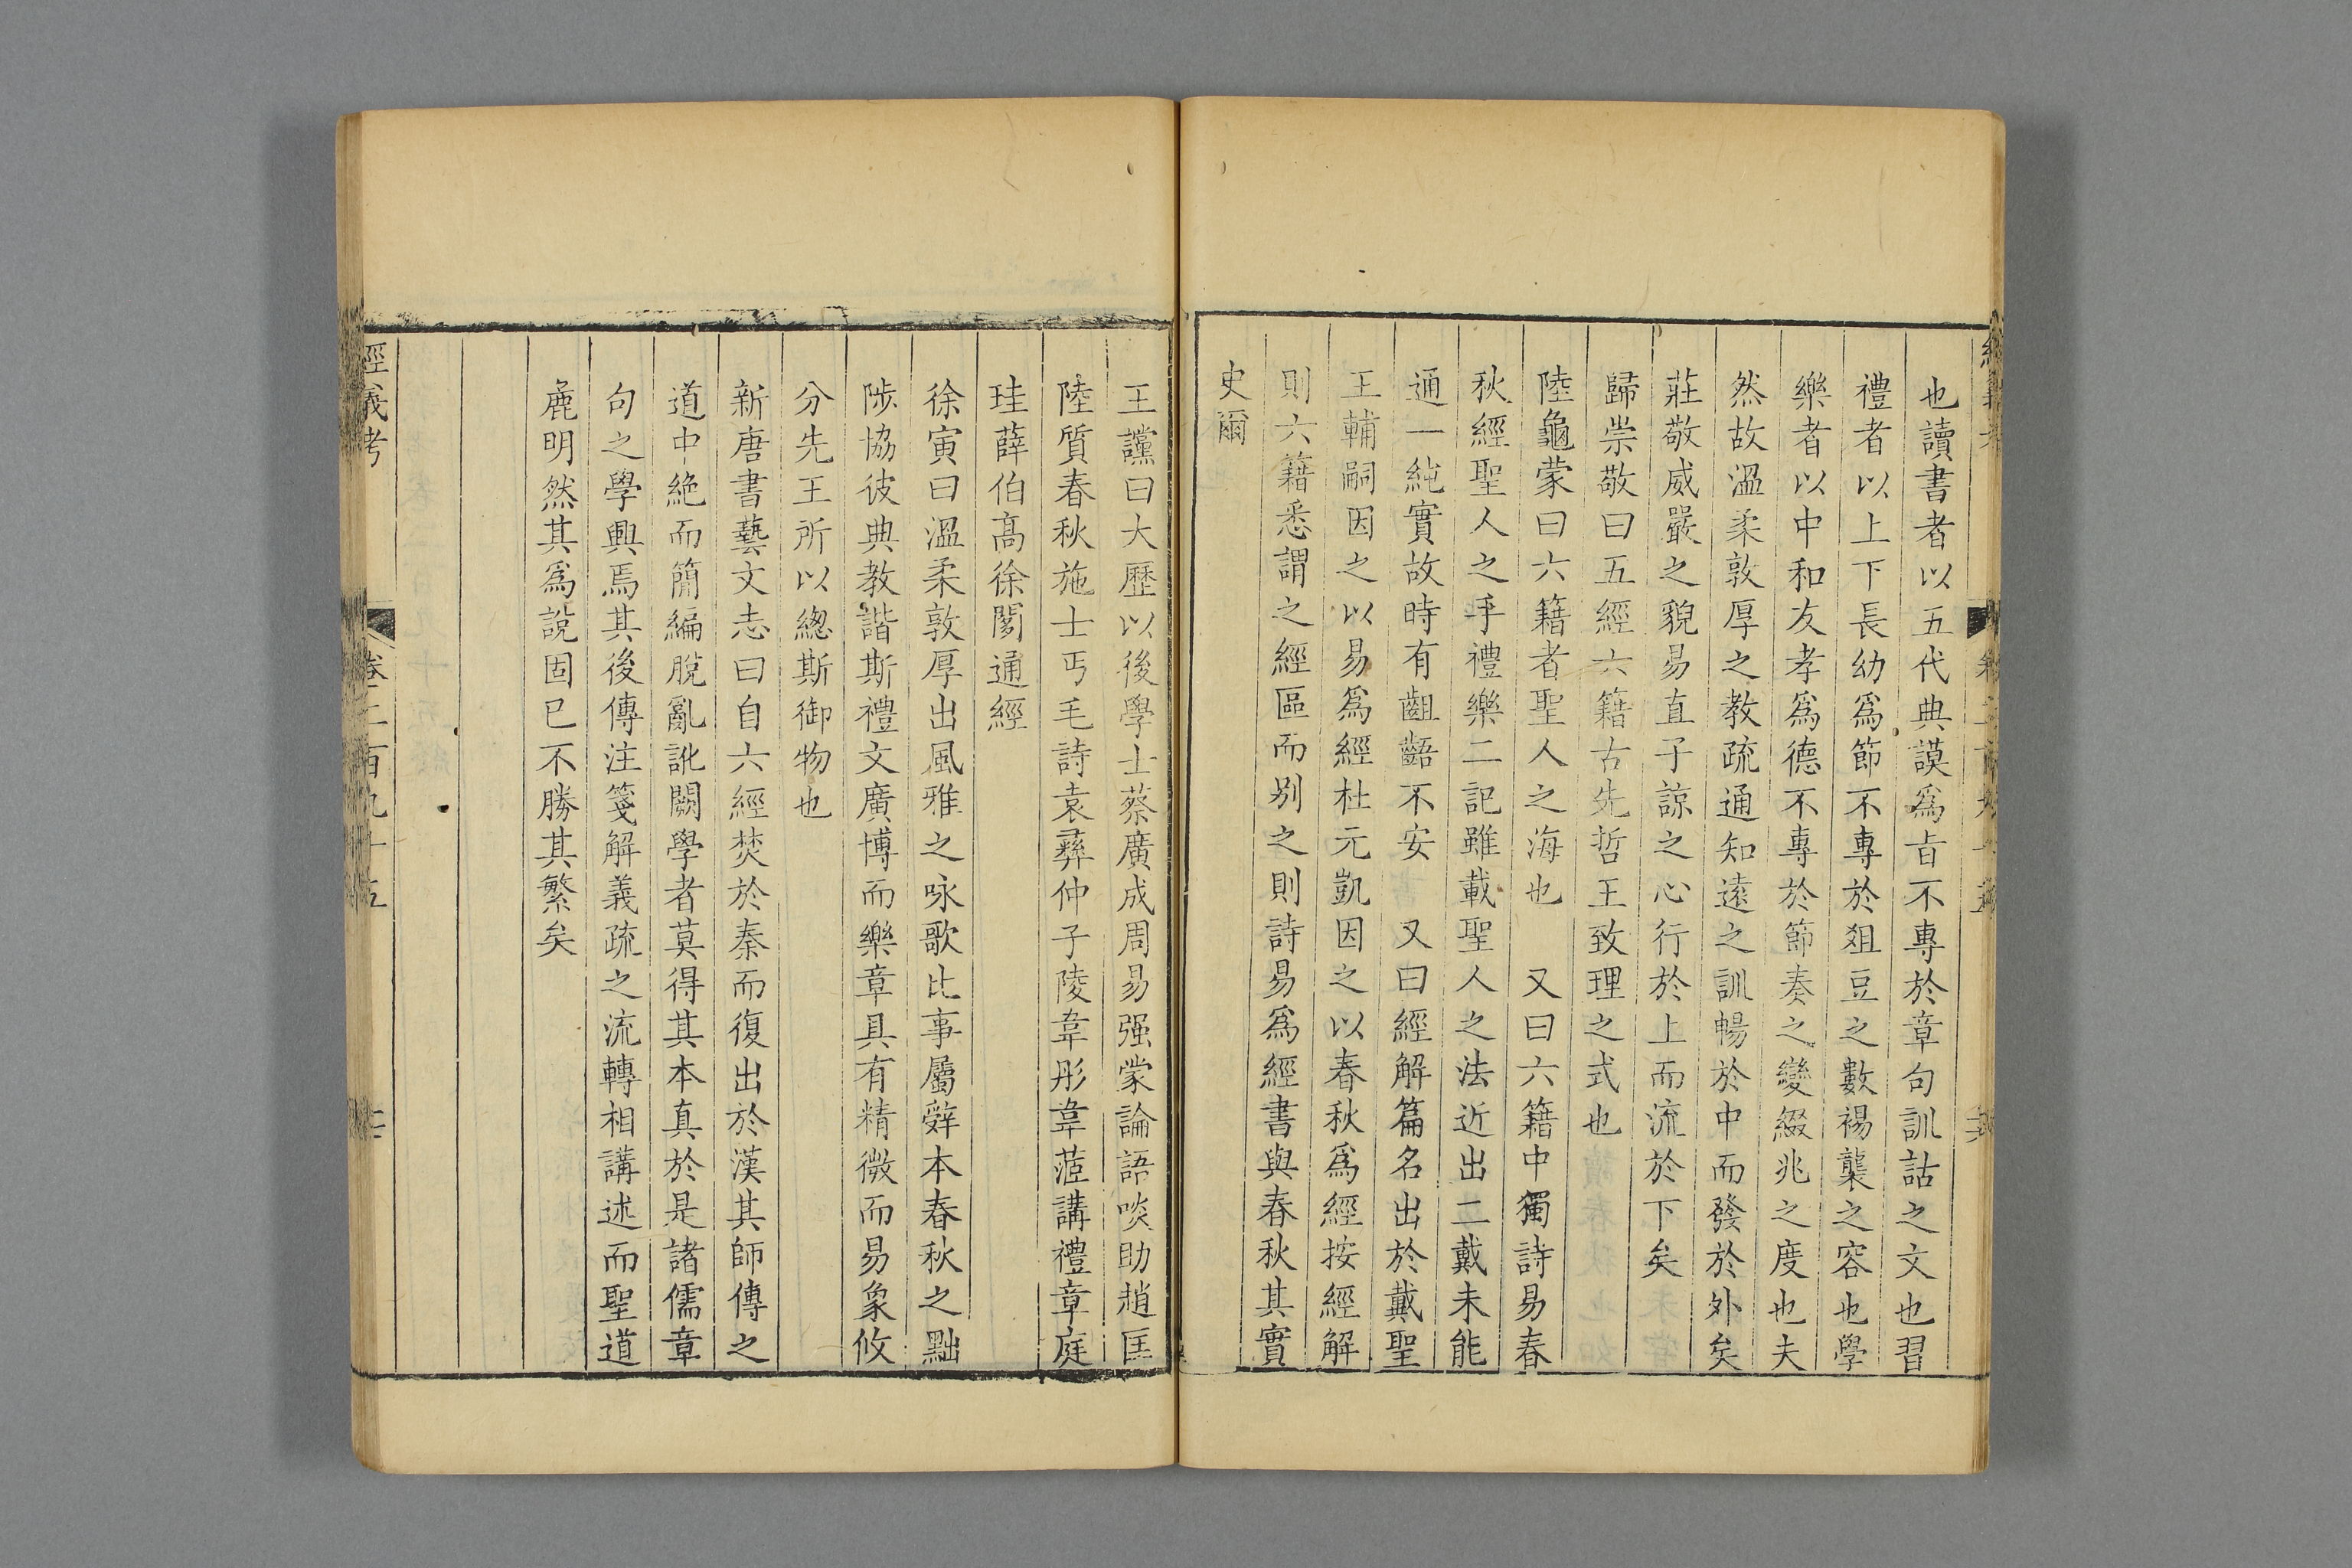 也讀書者以五代典謨爲旨不專於章句訓詁之文也習
禮者以上下長幼爲節不專於俎豆之數裼襲之容也學
樂者以中和友孝爲德不專於節奏之變綴兆之度也夫
然故溫柔敦厚之教疏通知遠之訓暢於中而發於外矣
莊敬威嚴之貌易直子諒之心行於上而流於下矣
歸崇敬曰五經六籍古先哲王致理之式也
陸龜蒙曰六籍者聖人之海也　又曰六籍中獨詩易春
秋經聖人之手禮樂二記雖載聖人之法近出二戴未能
通一純實故時有齟齬不安　又曰經解篇名出於戴聖
王輔嗣因之以易爲經杜元凱因之以春秋爲經按經解
則六籍悉謂之經區而别之則詩易爲經書與春秋其實
史爾
王讜曰大歷以後學士蔡廣成周易强蒙論語啖助趙匡
陸質春秋施士丐毛詩袁彛仲子陵韋彤韋茝講禮章庭
珪薛伯高徐閏通經
徐寅曰溫柔敦厚出風雅之咏歌比事屬辤本春秋之黜
陟協彼典教諧斯禮文廣博而樂章具有精微而易象攸
分先王所以緫斯御物也
新唐書藝文志曰自六經焚於秦而復出於漢其師傳之
道中絶而簡編脫亂訛闕學者莫得其本真於是諸儒章
句之學興焉其後傳注箋解義疏之流轉相講述而聖道
麄明然其爲說固已不勝其繁矣
經義考
卷二百九十五